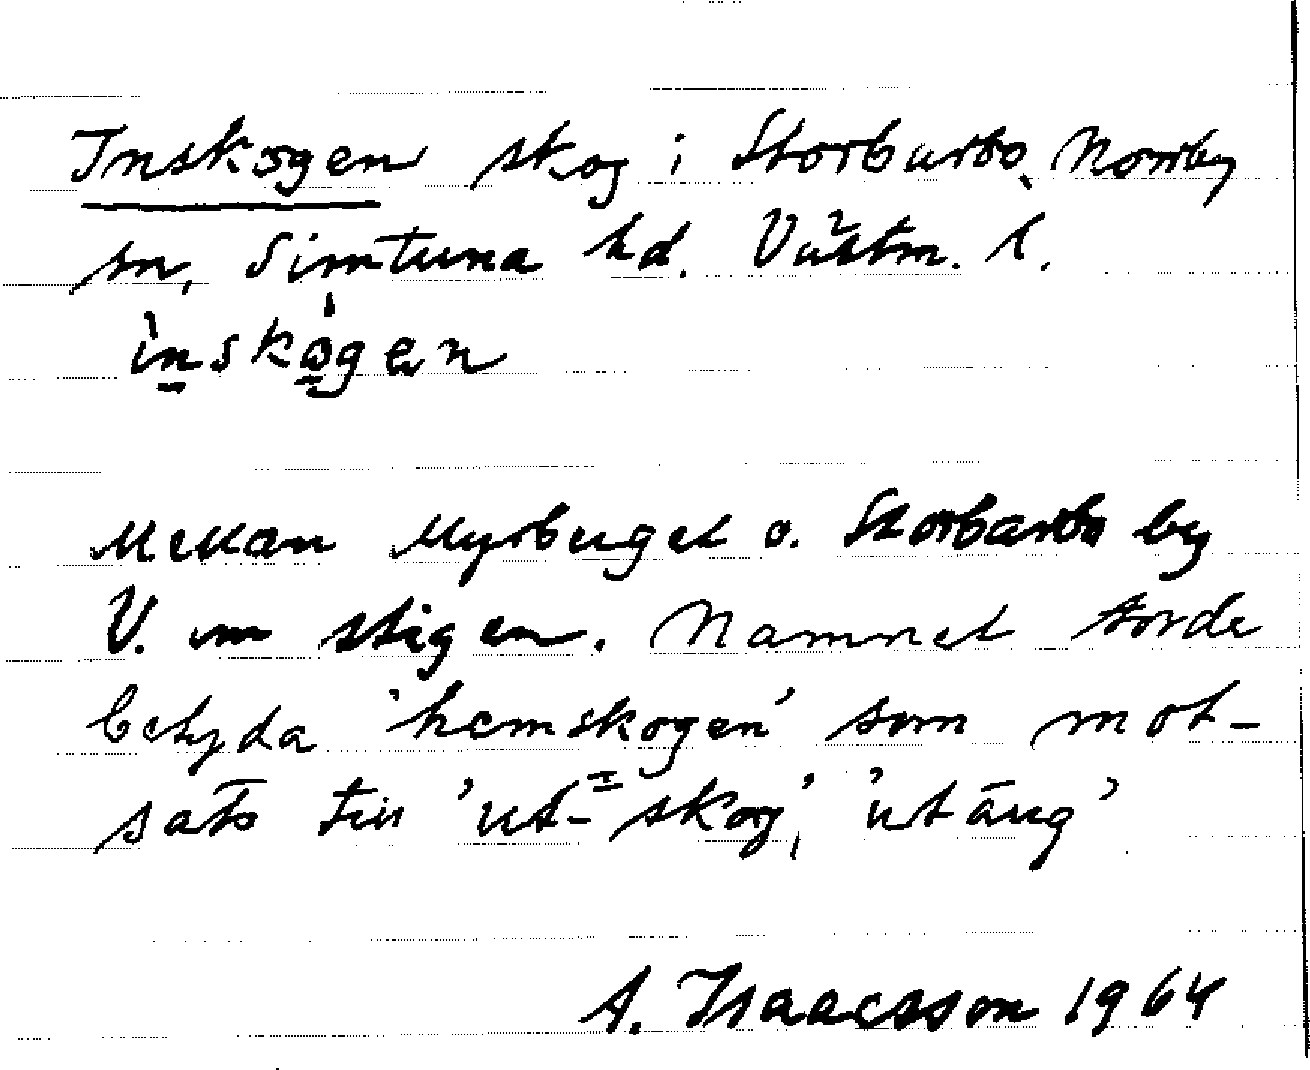 Inskogen skog i Storbarbo, Norrby
sn, Simtuna hd. Västm. l.
ìnskògen
Mellan Myrbuget o. Storbarbo by
V. om stigen. Namnet torde
betyda 'hemskogen' som mot-
sats till 'ut-skog', 'utäng'
A. Isaacsson 1964